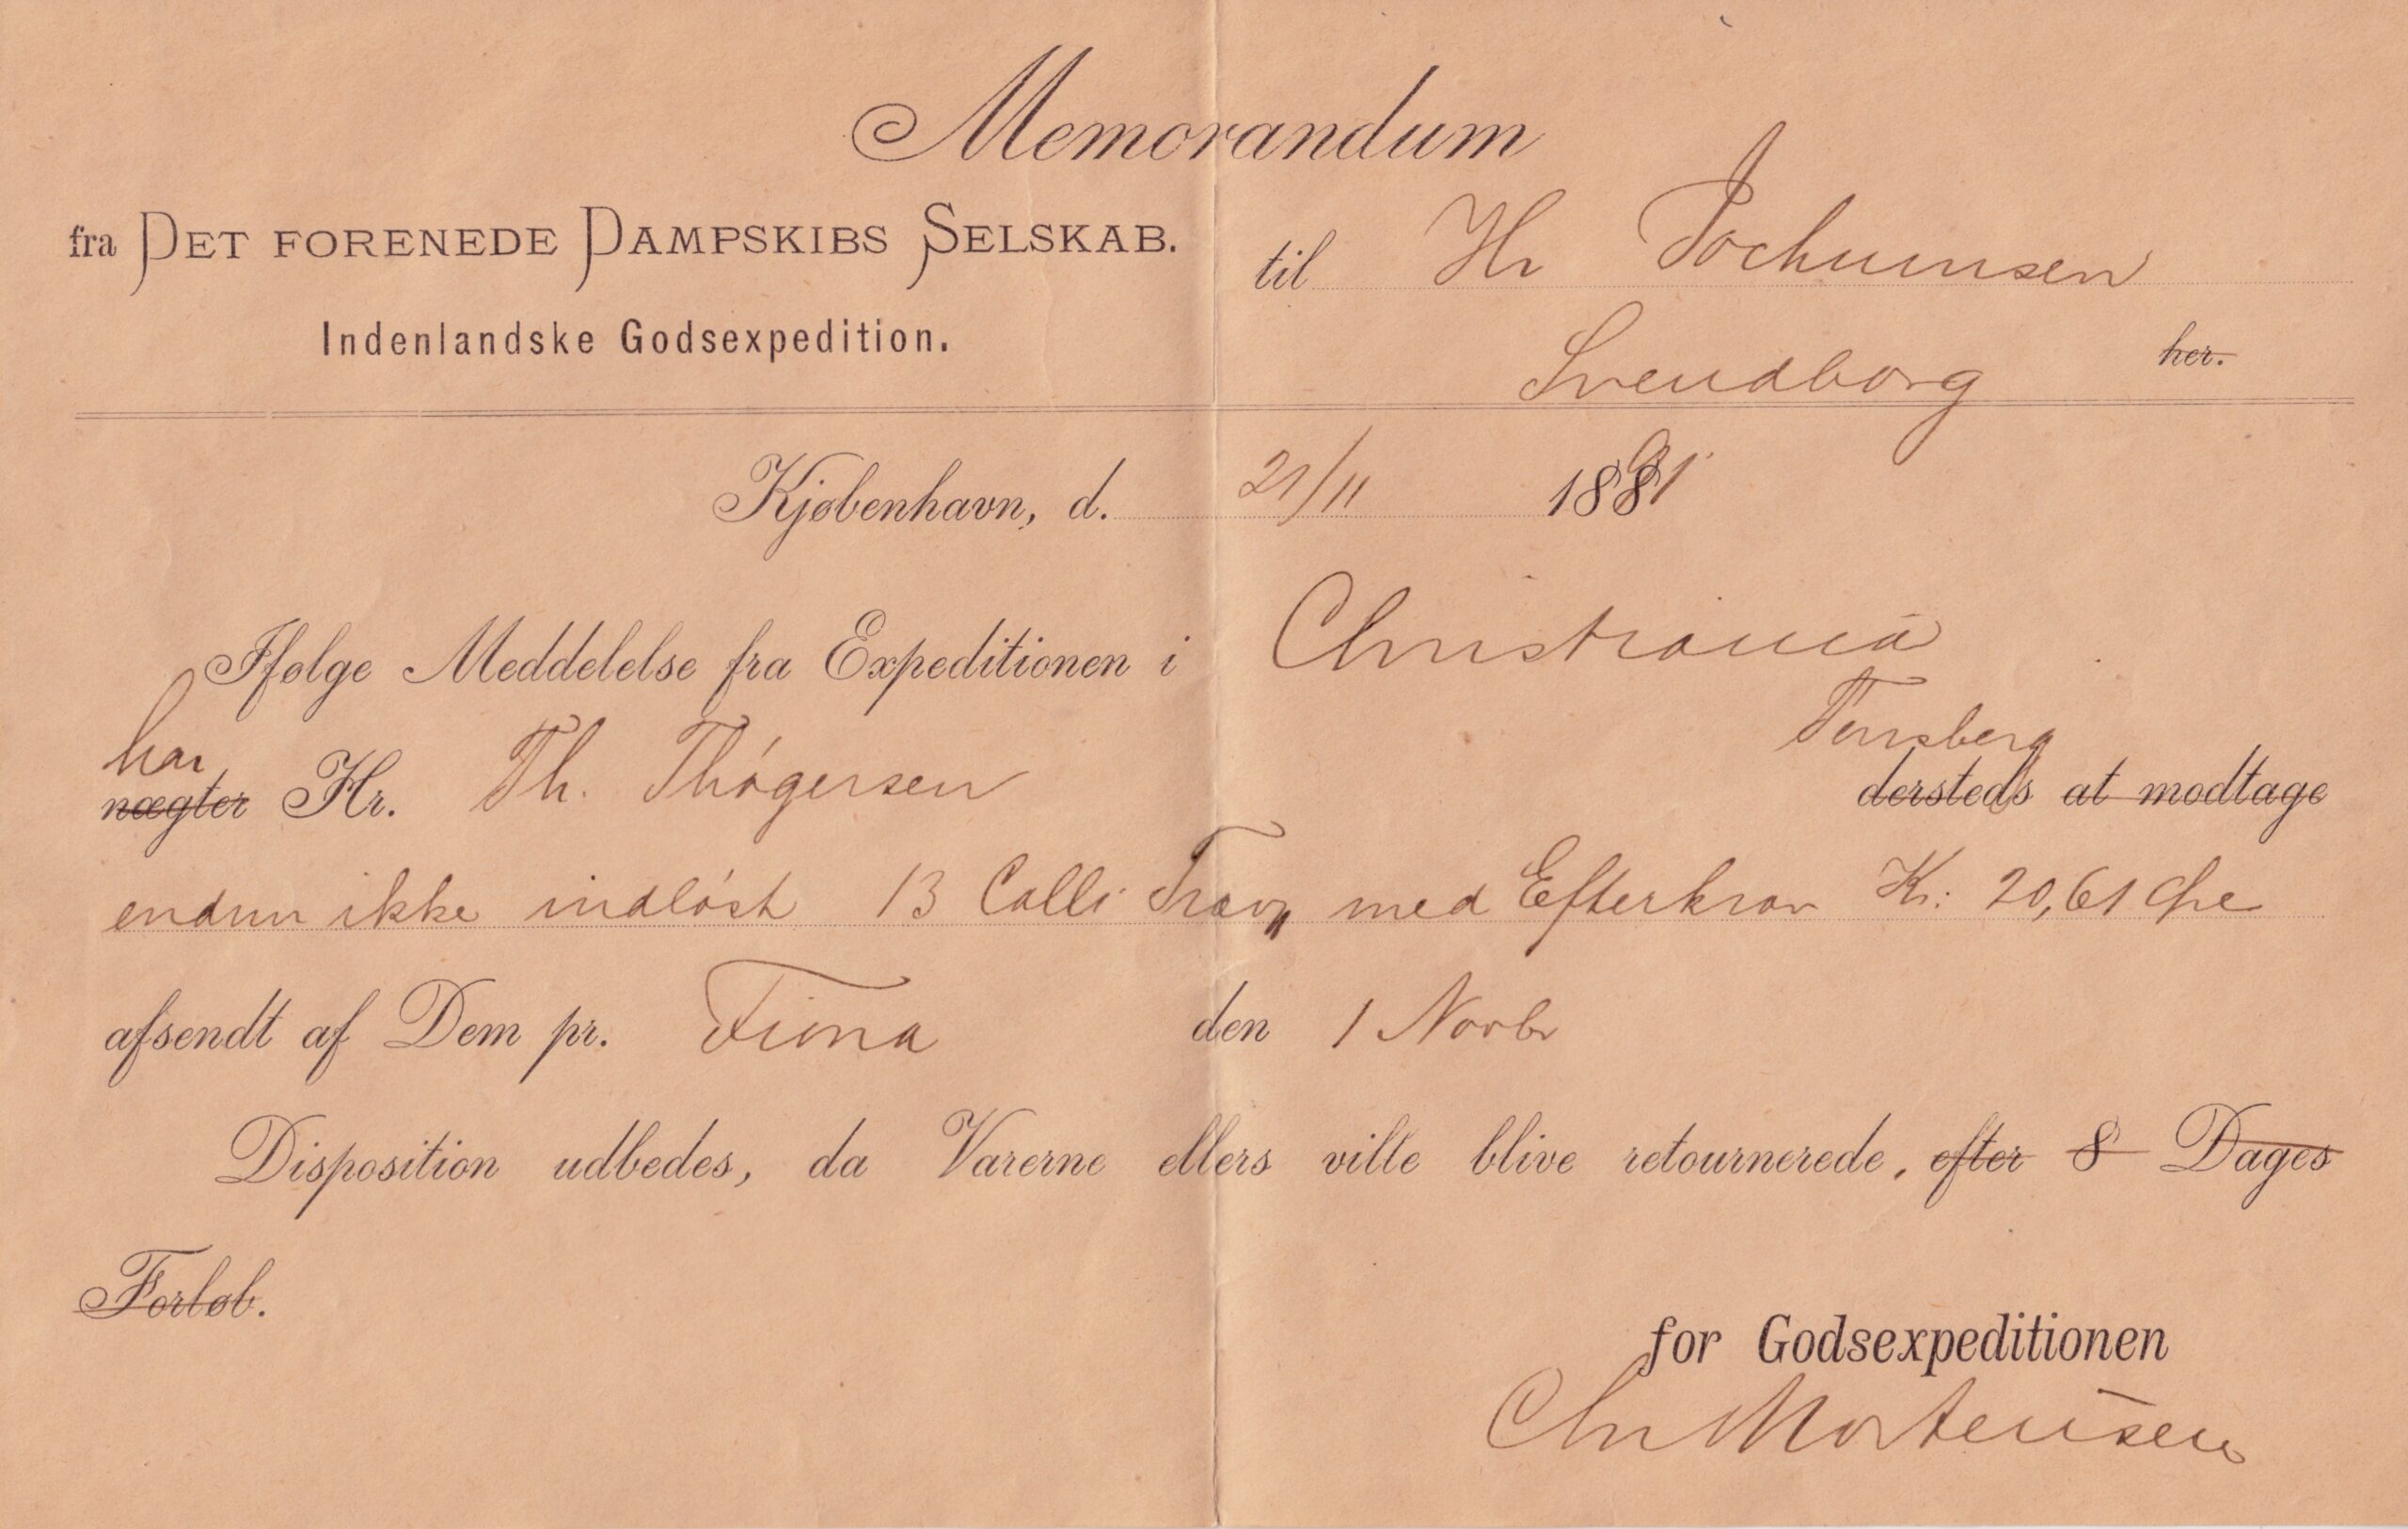 Memorandum
fra DET FORENEDE DAMPSKIBS SELSKAB.
Indenlandske Godsexpedition.
til Hr Jochumsen
Svendborg her.
Kjøbenhavn, d. 21/11 1891
Ifølge Meddelelse fra Expeditionen i Christiania
har Tønsberg
nægter Hr. Th. Thøgersen dersteds at modtage
endnu ikke indløst 13 Colli med Efterkrav Kr: 20,61 Øre
afsendt af Dem pr. Fiona den 1 Novbr
Disposition udbedes, da Varerne ellers ville blive retournerede. efter 8 Dages
Forløb.
for Godsexpeditionen
Chr Mortensen